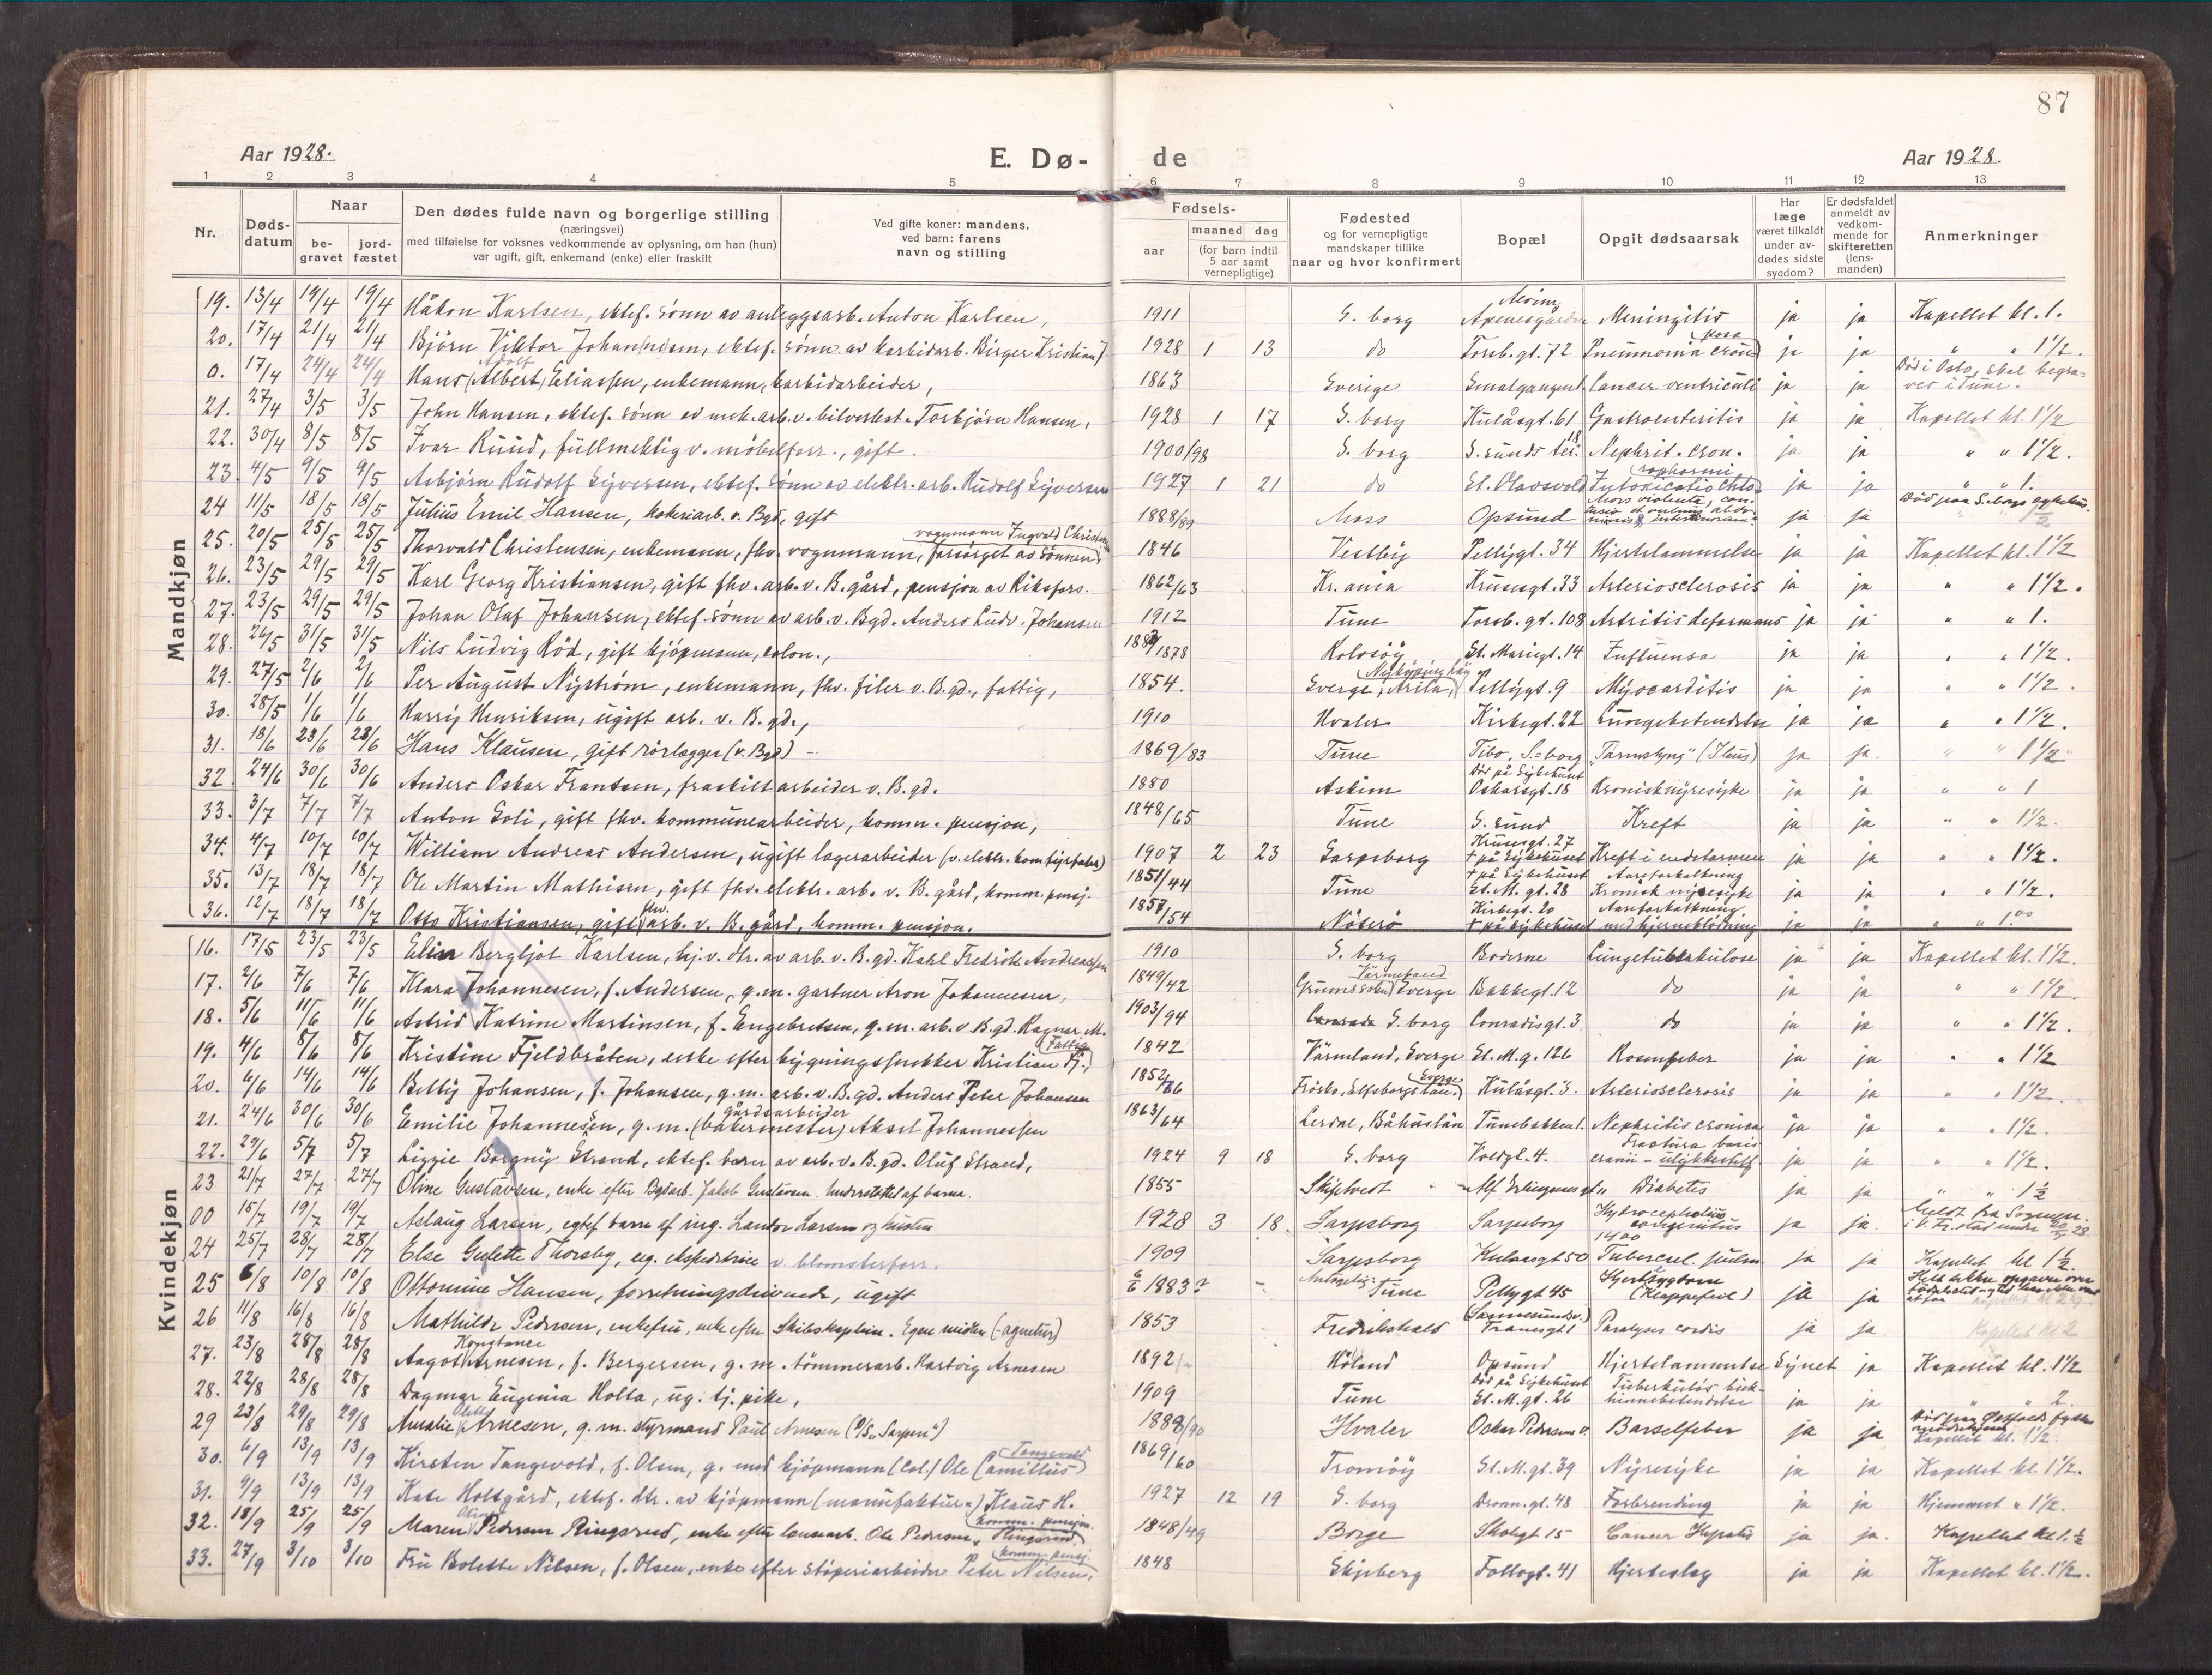 87
Aar 1928.
E. Dø-
de
Aar 1928.
1 2 3 4 5 6 7 8 9 10 11 12 13
Nr.
Døds-
datum
Naar
be-
gravet
jord-
fæstet
Den dødes fulde navn og borgerlige stilling
(næringsvei)
med tilføielse for voksnes vedkommende av oplysning, om han (hun)
var ugift, gift, enkemand (enke) eller fraskilt
Ved gifte koner: mandens,
ved barn: farens
navn og stilling
Fødsels-
aar
maaned dag
(for barn indtil
5 aar samt
vernepligtige)
Fødested
og for vernepligtige
mandskaper tillike
naar og hvor konfirmert
Bopæl
Opgit dødsaarsak
Har
læge
været tilkaldt
under av-
dødes sidste
sygdom?
Er dødsfaldet
anmeldt av
vedkom-
mende for
skifteretten
(lens-
manden)
Anmerkninger
Mandkjøn
19. 13/4 19/4 19/4 Håkon Karlsen, ektef. sønn av anleggsarb. Anton Karlsen, 1911 S. borg Meningitis ja ja Kapellet kl. 1.
20. 17/4 21/4 21/4 Bjørn Viktor Johan(ne)sen, ektef. sønn av karbidarb. Birger Kristian J 1928 1 13 do Torsb. gt. 72 Pneumonia ja ja " " 1 1/2.
0. 17/4 24/4 24/4 Hans (Albert) Adolf Eliassen, enkemann, karbidarbeider, 1863 Sverige Cancer ventriculi ja ja Död i Oslo, skal begra-
ves i Tune.
21. 27/4 3/5 3/5 John Hansen, ektef. sønn av mek. arb. v. bilverkst. Torbjørn Hansen, 1928 1 17 S. borg Kulåsgt. 61 Gastroenteritis ja ja Kapellet kl. 1 1/2
22. 30/4 8/5 8/5 Ivar Ruud, fullmektig v. møbelforr., gift. 1900/98 S. borg S. sunds ter. 18 Nephrit. cron. ja ja " " 1 1/2.
23 4/5 9/5 9/5 Asbjørn Rudolf Syversen, ektef. sønn av elektr. arb. Rudolf Syversen 1927 1 21 do St. Olavsvold ja ja " " 1.
24 11/5 18/5 18/5 Julius Emil Hansen, kokeriarb. v. Bgd., gift 1888/89 Moss Opsund Mors violenta ja ja Död paa S.borgs sykehus.
25. 20/5 25/5 25/5 Thorvald Christensen, enkemann, fhv. vognmann, forsørget av sønnen vognmann Ingvald Christensen 1846 Vestby Pellygt. 34 Hjertelammelse ja ja Kapellet kl. 1 1/2
26. 23/5 29/5 29/5 Karl Georg Kristiansen, gift fhv. arb. v. B. gård, pensjon av Riksfors. 1862/63 Kr. ania Krusesgt. 33 Arteriosclerosis ja ja " " 1 1/2.
27. 23/5 29/5 29/5 Johan Olaf Johansen, ektef. sønn av arb. v. Bgd. Anders Ludv. Johansen 1912 Tune Torsb. gt. 108 Artritis deformans ja ja " " 1.
28. 26/5 31/5 31/5 Nils Ludvig Röd, gift kjøpmann, colon., 1878 St. Mariegt. 14 Influensa ja ja " " 1 1/2.
29. 27/5 2/6 2/6 Per August Nyström, enkemann, fhv. filer v. B. gd., fattig, 1854. Sverge, Pellygt. 9 Myocarditis ja ja " " 1 1/2.
30. 28/5 1/6 1/6 Harry Henriksen, ugift arb. v. B. gd., 1910 Hvaler Kirkegt. 22 Lungebetendelse ja ja " " 1 1/2.
31. 18/6 23/6 23/6 Hans Klausen, gift rörlegger (v. Bgd) - 1869/83 Tune Tibo, S.=borg "Tarmslyng" (Ileus) ja ja. " " 1 1/2
32. 24/6 30/6 30/6 Anders Oskar Frantsen, fraskilt arbeider v. B. gd. 1880 Askim Död på Sykehuset Oskarsgt. 18 Kronisk nyresyke ja ja " " 1
33. 3/7 7/7 7/7 Anton Soli, gift fhv. kommunearbeider, komm. pensjon, 1848/65 Tune S. sund Kreft ja ja " " 1 1/2.
34. 4/7 10/7 10/7 William Andreas Andersen, ugift lagerarbeider 1907 2 23 Sarpsborg Krusesgt. 27 + på Sykehuset Kreft i endetarmen ja ja " " 1 1/2.
35. 13/7 18/7 18/7 Ole Martin Mathisen, gift fhv. elektr. arb. v. B. gård, komm. pensj. 1851/44 Tune + på Sykehuset St. M. gt. 28 Aareforkalkning Kronisk nyresyke ja ja " " 1 1/2.
36. 12/7 18/7 18/7 Otto Kristiansen, gift fhv. arb. v. B. gård, komm. pensjon. 1857/54 Nöterö Kirkegt. 20 + på Sykehuset Aareforkalkning med hjerneblödning ja ja " " 1.00
Kvindekjøn
16. 17/5 23/5 23/5 Elin Bergljot Karlsen, hj. v. dtr. av arb. v. B. gd. Karl Fredrik Andreassen 1910 S. borg Boderne Lungetuberkulose ja ja Kapellet kl. 1 1/2.
17. 2/6 7/6 7/6 Klara Johannesen, f. Andersen, g. m. gartner Aron Johannesen, 1849/42 Värmland Sverge Bakkegt. 12 do ja ja " " 1 1/2.
18. 5/6 11/6 11/6 Astrid Katrine Martinsen, f. Engebretsen, g. m. arb. v. B. gd. Ragnar M. 1903/94 S. borg Conradisgt. 3 do ja ja " " 1 1/2.
19. 4/6 8/6 8/6 Kristine Fjeldbråten, enke efter bygningssnekker Kristian Fj. Fattig 1842 Värmland, Sverge St. M. g. 126 Rosenfeber ja ja " " 1 1/2
20. 6/6 14/6 14/6 Betty Johansen, f. Johansen, g. m. arb. v. B. gd. Anders Peter Johansen 1852/66 Elfsborgs län, Sverge Kulåsgt. 3. Arteriosclerosis ja ja " " 1 1/2.
21. 24/6 30/6 30/6 Emilie Johannesen, g. m. (bakermester) gårdsarbeider Aksel Johannessen 1863/64 Lerdal, Båhuslän Tunebakken 1. Nephritis cronica ja ja " " 1 1/2.
22. 29/6 5/7 5/7 Lizzie Borgny Strand, ektef. barn av arb. v. B. gd. Oluf Strand, 1924 9 18 S. borg Voldgt. 4. Fractura basis cranii - ulykkestilf ja ja " " 1 1/2.
23 21/7 27/7 27/7 Oline Gustavsen, enke efter Bgdarb. Jakob Gustavsen. Understøttet af barna. 1855 Skiptvedt Diabetes ja ja " " 1 1/2
00 15/7 19/7 19/7 Aslaug Larsen, egtef. barn af ing. Larsen og hustru 1928 3 18. Sarpsborg Sarpsborg Hydrocephalus congenitus ja ja.
24 25/7 28/7 28/7 Else Gulette Thorsby, ug. ekspeditrice v. blomsterforr. 1909 Sarpsborg Kulaasgt 50 Tubercul. pulm. ja ja Kapellet kl 1 1/2.
25 6/8 10/8 10/8 Ottomine Hansen, forretningsdrivende, ugift 6/6 1883? - Antagelig: Tune Pellygt 45 Hjertesygdom (Klappefeil) ja ja
26 11/8 16/8 16/8 Mathilde Pedersen, enkefru, enke efter Skibskaptein. Egne midler (-agentur) 1853 Fredrikshald Paralyses cordis ja ja Kapellet kl 2
27. 23/8 28/8 28/8 Aagot Konstance Arnesen, f. Bergersen, g. m. tömmerarb. Hartvig Arnesen 1892 Höland Opsund Hjertelammelse Synet ja Kapellet kl. 1 1/2
28. 22/8 28/8 28/8 Dagmar Eugenia Holta, ug. tj. pike, 1909 Tune Död på Sykehuset St. M. gt. 26 Tuberkulös buk-
hinnebetendelse ja ja " " 2.
29 23/8 29/8 29/8 Amalie Arnesen, g. m. styrmand Paul Arnesen (D/S "Sarpen") 1889/90 Hvaler Oskar Pedersens v. Barselfeber ja ja Kapellet kl. 1 1/2.
30. 6/9 13/9 13/9 Kirsten Tangevold, f. Olsen, g. med kjöpmann (Col.) Ole Camillus Tangevold 1869/60 Tromöy St. M. gt. 39 Nyresyke ja ja Kapellet kl. 1 1/2.
31. 9/9 13/9 13/9 Kate Holtgård, ektef. dtr. av kjöpmann (manufaktur-) Klaus H. 1927 12 19 S. borg Dronn. gt. 48 Forbrending ja ja Hjemmet " 1 1/2.
32. 18/9 25/9 25/9 Maren Oline Pedersen Ringsrud, enke efter Ole Pedersen Ringsrud, komm. pensjon. 1848/49 Borge Skolegt 15 Cancer Hepatis ja ja. Kapellet kl 1 1/2
33. 27/9 3/10 3/10 Fru Bolette Nilsen, f. Olsen, enke efter støperiarbeider Peter Nilsen, komm. pensj. 1848 Skjeberg Hjerteslag ja ja Kapellet kl. 1 1/2.